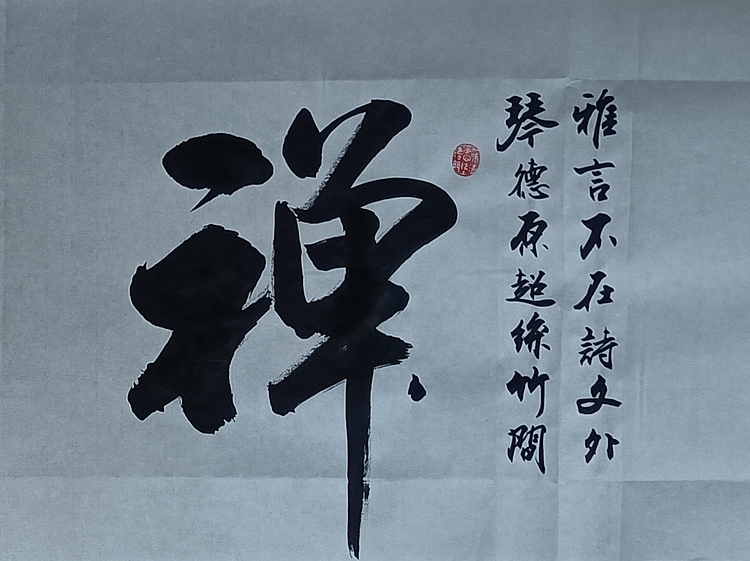 雅言不在詩文外
琴德原超絲竹間
禅